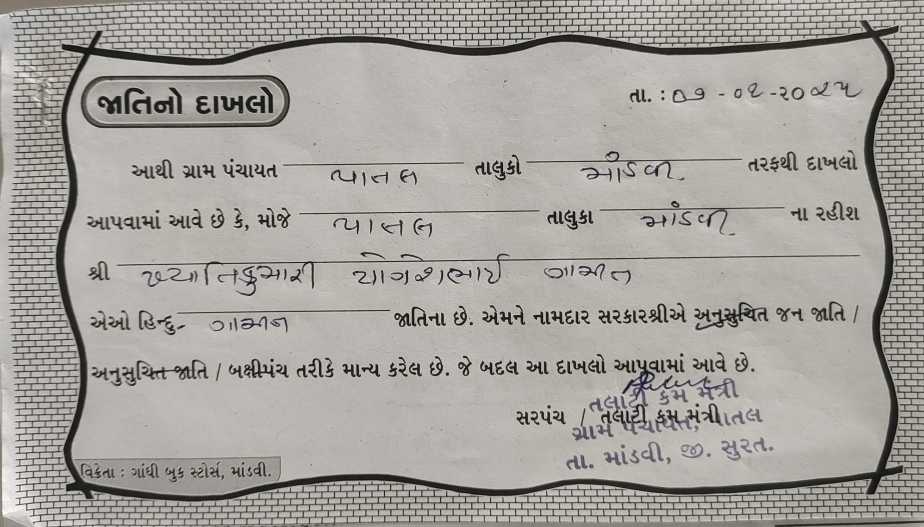 જાતિનો દાખલો
તા. : ૦૭ - ૦૨ - ૨૦૨૫
આથી ગ્રામ પંચાયત પાતલ તાલુકો માંડવી તરફથી દાખલો
આપવામાં આવે છે કે, મોજે પાતલ તાલુકા માંડવી ના રહીશ
શ્રી ખ્યાતિકુમારી યોગેશભાઈ ગામીત
એઓ હિન્દુ- ગામીત જાતિના છે. એમને નામદાર સરકારશ્રીએ અનુસુચિત જન જાતિ /
અનુસુચિત જાતિ / બક્ષીપંચ તરીકે માન્ય કરેલ છે. જે બદલ આ દાખલો આપવામાં આવે છે.
સરપંચ / તલાટી કમ મંત્રી
તલાટી કમ મંત્રી
ગ્રામ પંચાયત, પાતલ
તા. માંડવી, જી. સુરત.
વિક્રેતા : ગાંધી બુક સ્ટોર્સ, માંડવી.